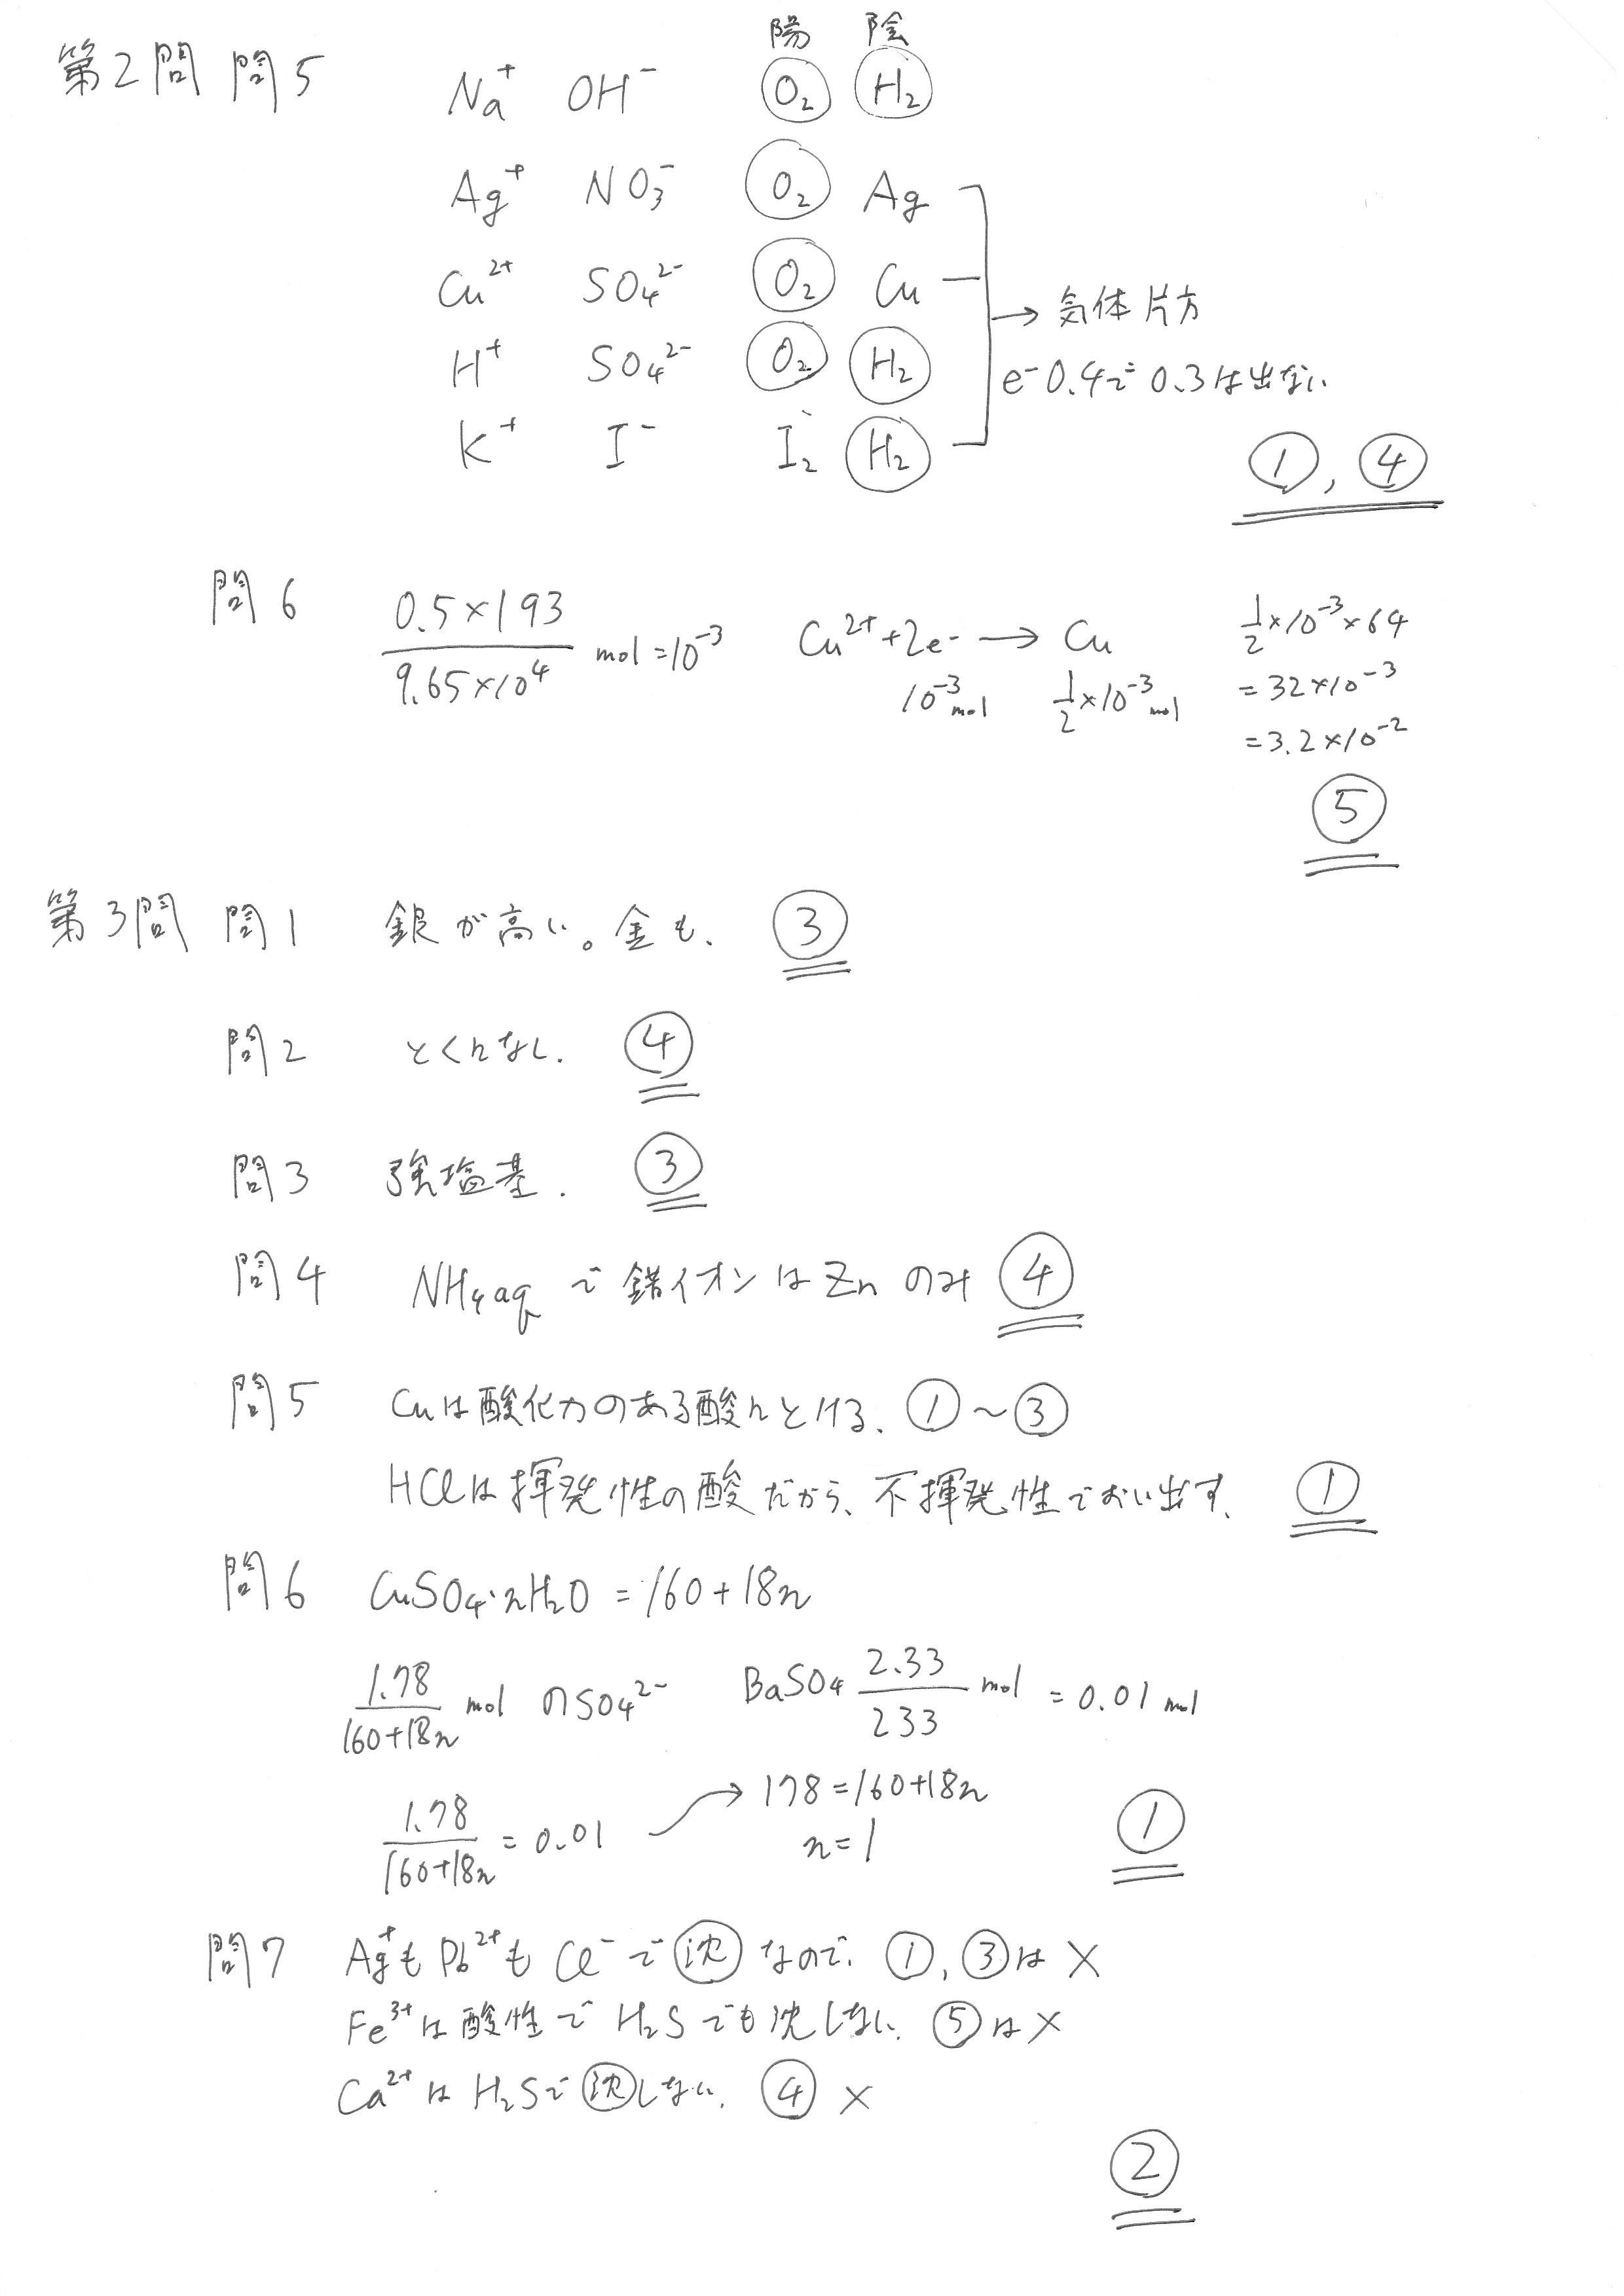 陽 陰
第2問 問5 Na⁺ OH⁻ O₂ H₂
Ag⁺ NO₃⁻ O₂ Ag
Cu²⁺ SO₄²⁻ O₂ Cu
→ 気体片方
H⁺ SO₄²⁻ O₂ H₂
e⁻0.4で0.3は出ない
K⁺ I⁻ I₂ H₂
①, ④
問6 0.5×193/9.65×10⁴ mol=10⁻³ Cu²⁺+2e⁻→Cu 1/2×10⁻³×64
10⁻³mol 1/2×10⁻³mol =32×10⁻³
=3.2×10⁻²
⑤
第3問 問1 銀が高い。金も、 ③
問2 とくになし. ④
問3 強塩基. ③
問4 NH₄aqで錯イオンはZnのみ ④
問5 Cuは酸化力のある酸にとける、①～③
HClは揮発性の酸だから、不揮発性でおい出す、 ①
問6 CuSO₄·nH₂O=160+18n
1.78/160+18n mol のSO₄²⁻ BaSO₄ 2.33/233 mol =0.01mol
→178=160+18n
1.78/160+18n=0.01
n=1
①
問7 Ag⁺もPb²⁺もCl⁻で沈なので、①, ③は×
Fe³⁺は酸性でH₂Sでも沈しない、⑤は×
Ca²⁺はH₂Sで沈しない、④ ×
②